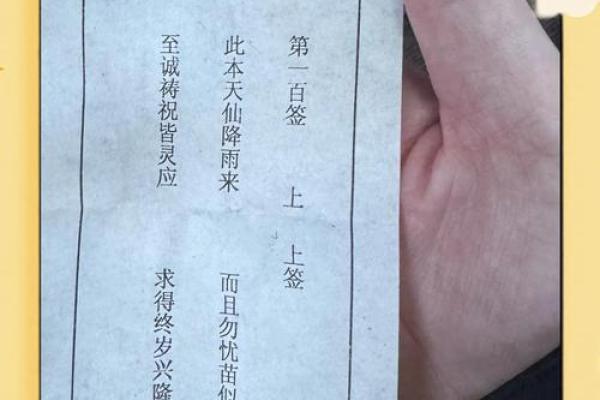 第一百签 上上签
此本天仙降雨来 而且勿忧苗似
至诚祷祝皆灵应 求得终岁兴隆